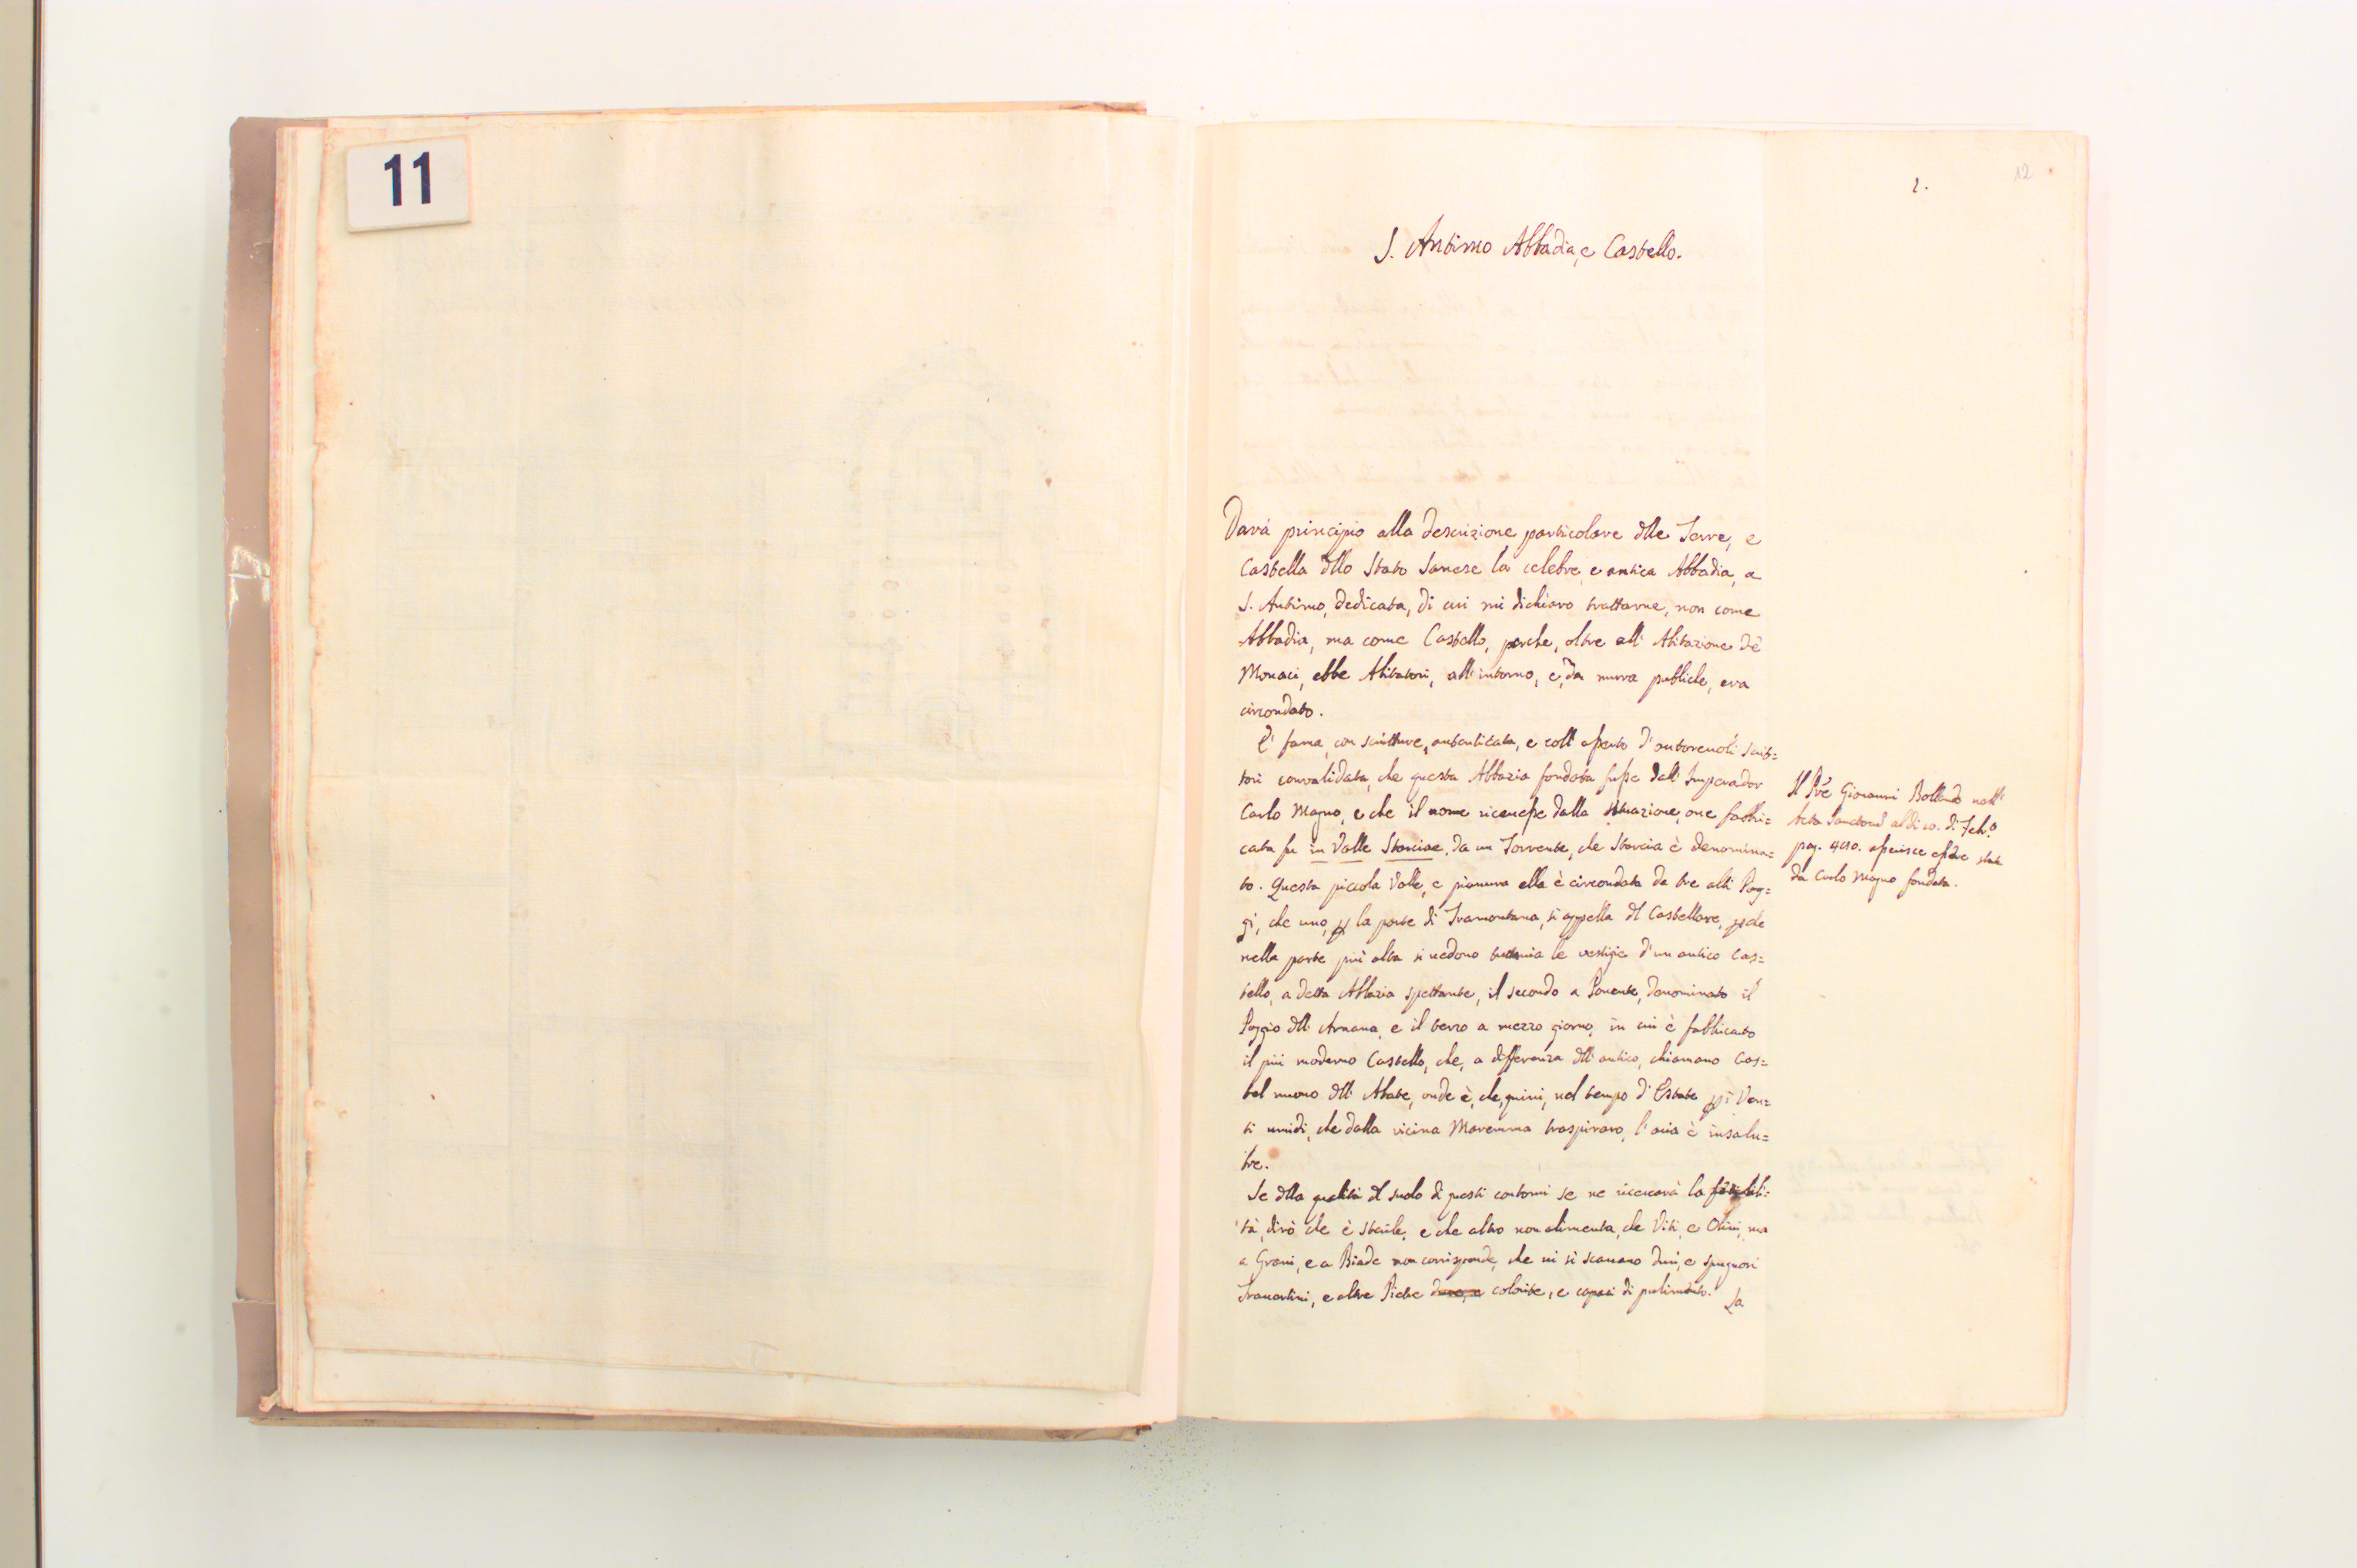 11
12
2.
S. Antimo Abbadia, e Castello.
Darà principio alla descrizione particolare dlle Terre, e
Castella dllo Stato Sanese la celebre e antica Abbadia, a
S. Antimo, dedicata, di cui mi dichiaro trattarne, non come
Abbadia, ma come Castello, perche, oltre all' Abitazione de'
Monaci, ebbe Abitatori, all'intorno, e, da mura publiche, era
circondato.
E' fama, con scritture, autenticata, e coll' asserto d'autorevoli Scrit=
tori convalidata, che questa Abbazia fondata fusse dall' Imperador
Carlo Magno, e che il nome ricevesse dalla situazione, ove fabbri=
cata fu in Valle Starciae, da un Torrente, che Starcia è denomina=
to. Questa piccola Valle, e pianura ella è circondata da tre alti Pog=
gi, che uno, p la parte di Tramontana, si appella dl Castellare, pche
nella parte più alta si vedono tuttavia le vestigie d'un antico Cas=
tello, a detta Abbazia spettante, il secondo a Ponente, denominato il
Poggio dll' Arnana, e il terzo a mezzo giorno, in cui è fabbricato
il più moderno Castello, che, a differenza dll' antico, chiamano Cas=
tel nuovo dll' Abate, onde è, che, quivi, nel tempo d'Estate p i Ven=
ti umidi, che dalla vicina Maremma traspirano, l'aria è insalu=
bre.
Se dlla qualità dl suolo di questi contorni se ne ricercarà la fertili=
tà, dirò che è sterile, e che altro non alimenta, che Viti, e Olivi, ma
a Grani, e a Biade non corrisponde, che ivi si scavano duri, e spugnosi
Travertini, e altre Pietre colorite, e capaci di pulimento.
La
Il Pre Giovanni Bollando nell'
Acta Sanctorum al dì 10. di Feb.o
pag. asserisce essere stata
da Carlo Magno fondata.